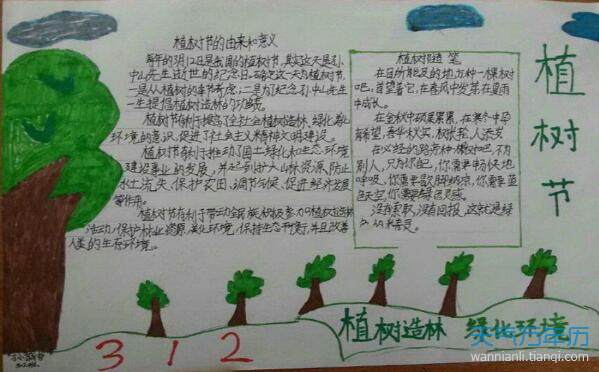 植树节的由来和意义
每年的3月12日是我国的植树节,其实这天是孙
中山先生逝世的纪念日。确定这一天为植树节,
一是从植树的季节考虑;二是为了纪念孙中山先
生一生提倡植树造林的功绩。
植树节有利于提高了全社会植树造林、绿化
环境的意识,促进了社会主义精神文明建设。
植树节有利于推动了国土绿化和生态环境
建设事业的发展,并起到扩大山林资源、防止
水土流失、保护农田、调节气候、促进经济发展
等作用。
植树节有利于带动全民积极参加植树造林
活动,保护林业资源,美化环境,保持生态平衡,并且改善
人类的生存环境。
植树随笔
在目所能及的地方种一棵树
吧,看望着它,在春风中发芽,在夏雨
中成长。
在金秋中硕果累累,在寒冬中孕
育希望。春华秋实,树长粗,人添岁
在必经的路旁种一棵树吧,不为
别人,只为你自己,你需要畅快地
呼吸,你需要歇脚的凉,你需要蓝
色天空,你需要绿色灵感。
没有索取,没有回报,这就是绿
植
树
节
植树造林 绿化环境
312
天气万年历
wannianli.tianqi.com